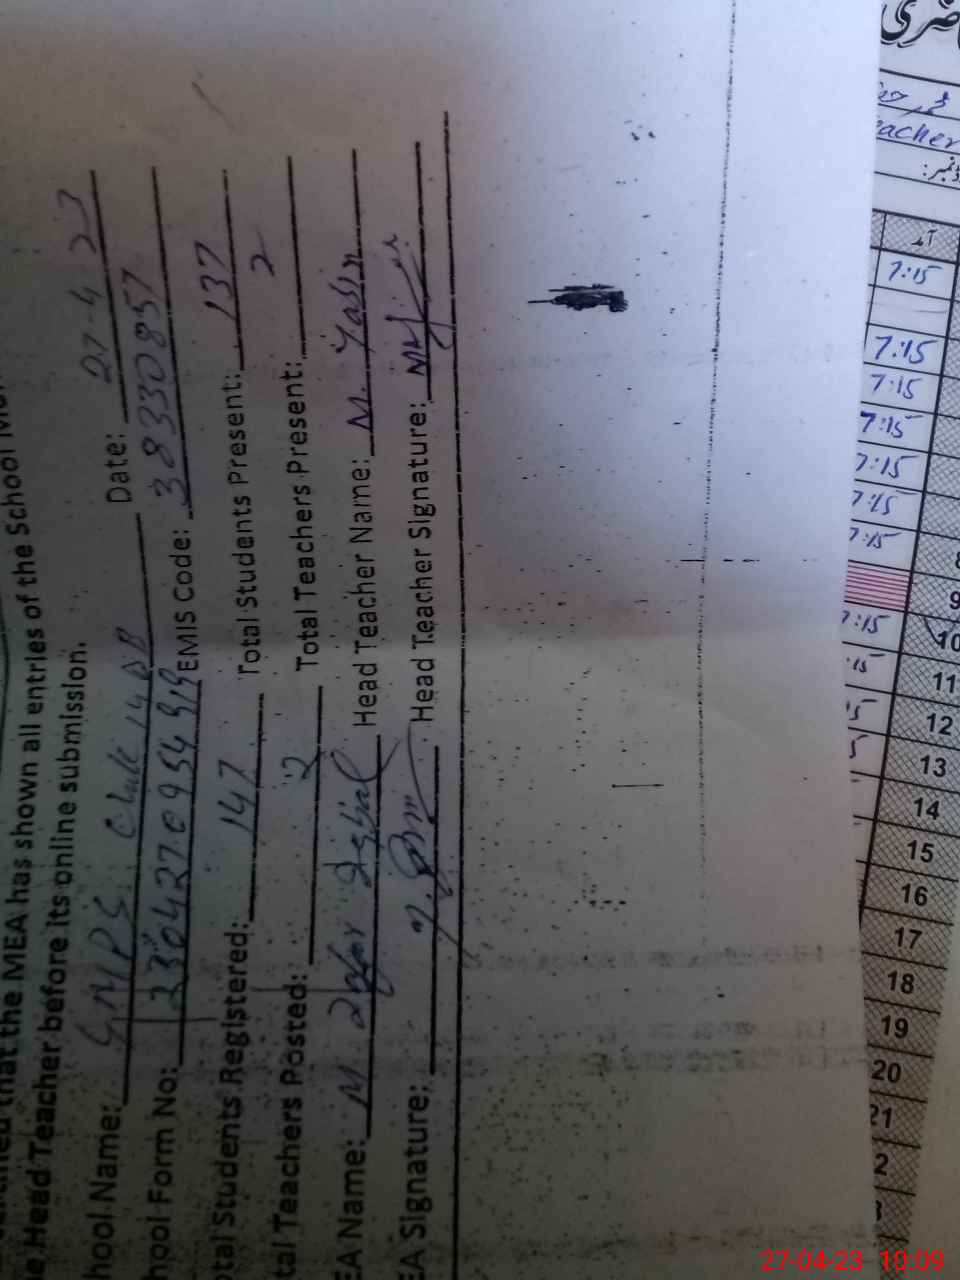 that the MEA has shown all entries of the School
Head Teacher before its online submission.
ool Name: GMPS Chak 14 BB Date: 27-4-23
ool Form No: EMIS Code: 38330857
tal Students Registered: 147 Total Students Present: 137
tal Teachers Posted: 2 Total Teachers Present: 2
EA Name: M Zafar Iqbal Head Teacher Name: M. Yasin
EA Signature: Head Teacher Signature:
eacher
آمد
7:15
7:15
7:15
7:15
7:15
7:15
7:15
8
9
7:15
10
:15
11
12
13
14
15
16
17
18
19
20
21
2
27-04-23 10:09